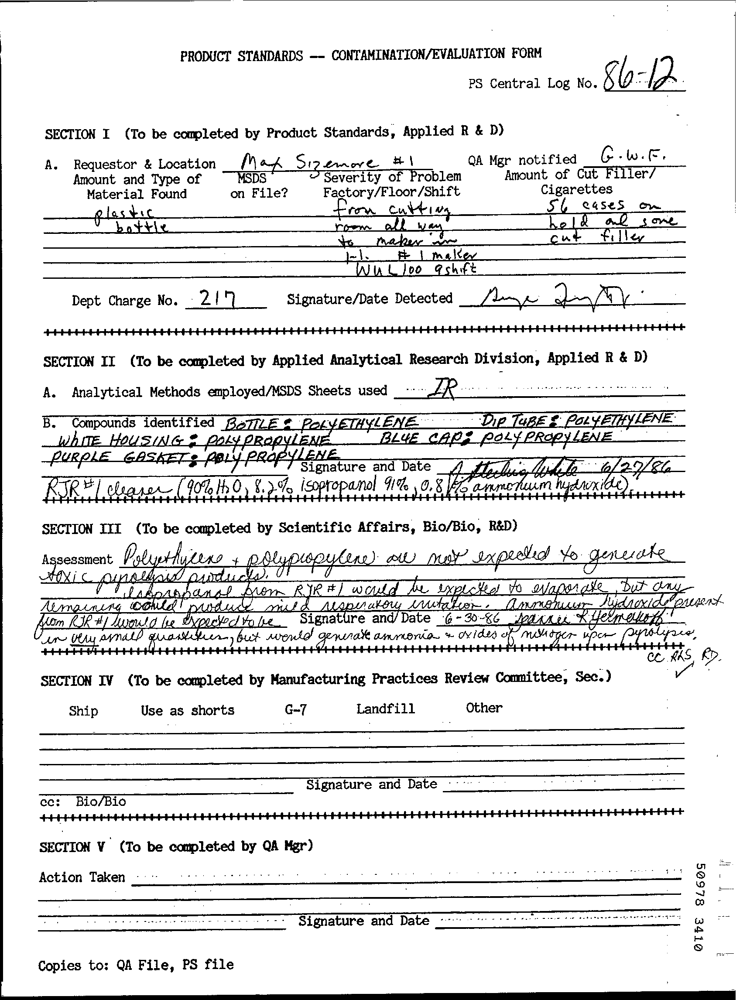 PRODUCT STANDARDS -- CONTAMINATION/EVALUATION FORM
PS Central Log No. 86-12
SECTION I (To be completed by Product Standards, Applied R & D)
A. Requestor & Location Max Sizemore #1 QA Mgr notified G.W.F.
Amount and Type of MSDS Severity of Problem Amount of Cut Filler/
Material Found on File? Factory/Floor/Shift Cigarettes
plastic from cutting 56 cases on
bottle room all way hold and some
to maker in cut filler
1-1. #1 maker
WUL 100 9 shift
Dept Charge No. 217 Signature/Date Detected
SECTION II (To be completed by Applied Analytical Research Division, Applied R & D)
A. Analytical Methods employed/MSDS Sheets used IR
B. Compounds identified BOTTLE: POLYETHYLENE DIP TUBE: POLYETHYLENE
WHITE HOUSING: POLYPROPYLENE BLUE CAP: POLYPROPYLENE
PURPLE GASKET: POLYPROPYLENE
Signature and Date A Sterling White 6/27/86
RJR #1 cleaner (90% H2O, 8.2% isopropanol 91%, 0.8% ammonium hydroxide)
SECTION III (To be completed by Scientific Affairs, Bio/Bio, R&D)
Assessment Polyethylene + polypropylene are not expected to generate
toxic pyrolysis products.
isopropanol from RJR #1 would be expected to evaporate, but any
remaining would produce mild respiratory irritation. ammonium hydroxide present
from RJR #1 would be expected to be Signature and Date 6-30-86
in very small quantities, but would generate ammonia + oxides of nitrogen upon pyrolysis.
cc RAS, RD.
SECTION IV (To be completed by Manufacturing Practices Review Committee, Sec.)
Ship Use as shorts G-7 Landfill Other
Signature and Date
cc: Bio/Bio
SECTION V (To be completed by QA Mgr)
Action Taken
Signature and Date
Copies to: QA File, PS file
50978 3410